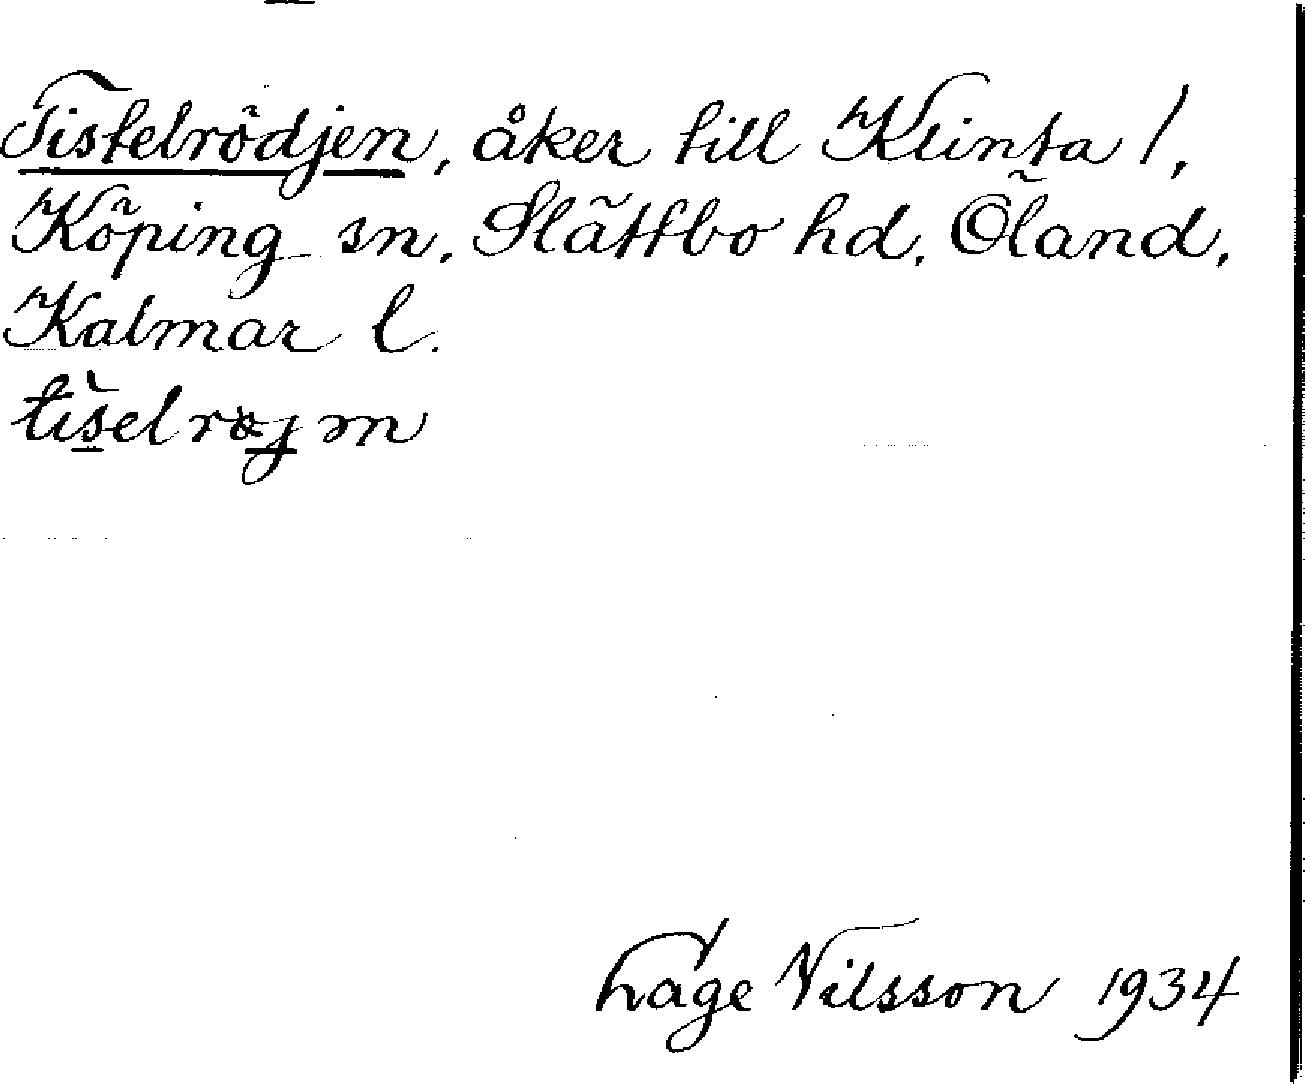 Tistelrödjen, åker till Klinta 1,
Köping sn, Slättbo hd, Öland,
Kalmar l.
tiselrøjm
Lage Nilsson 1934